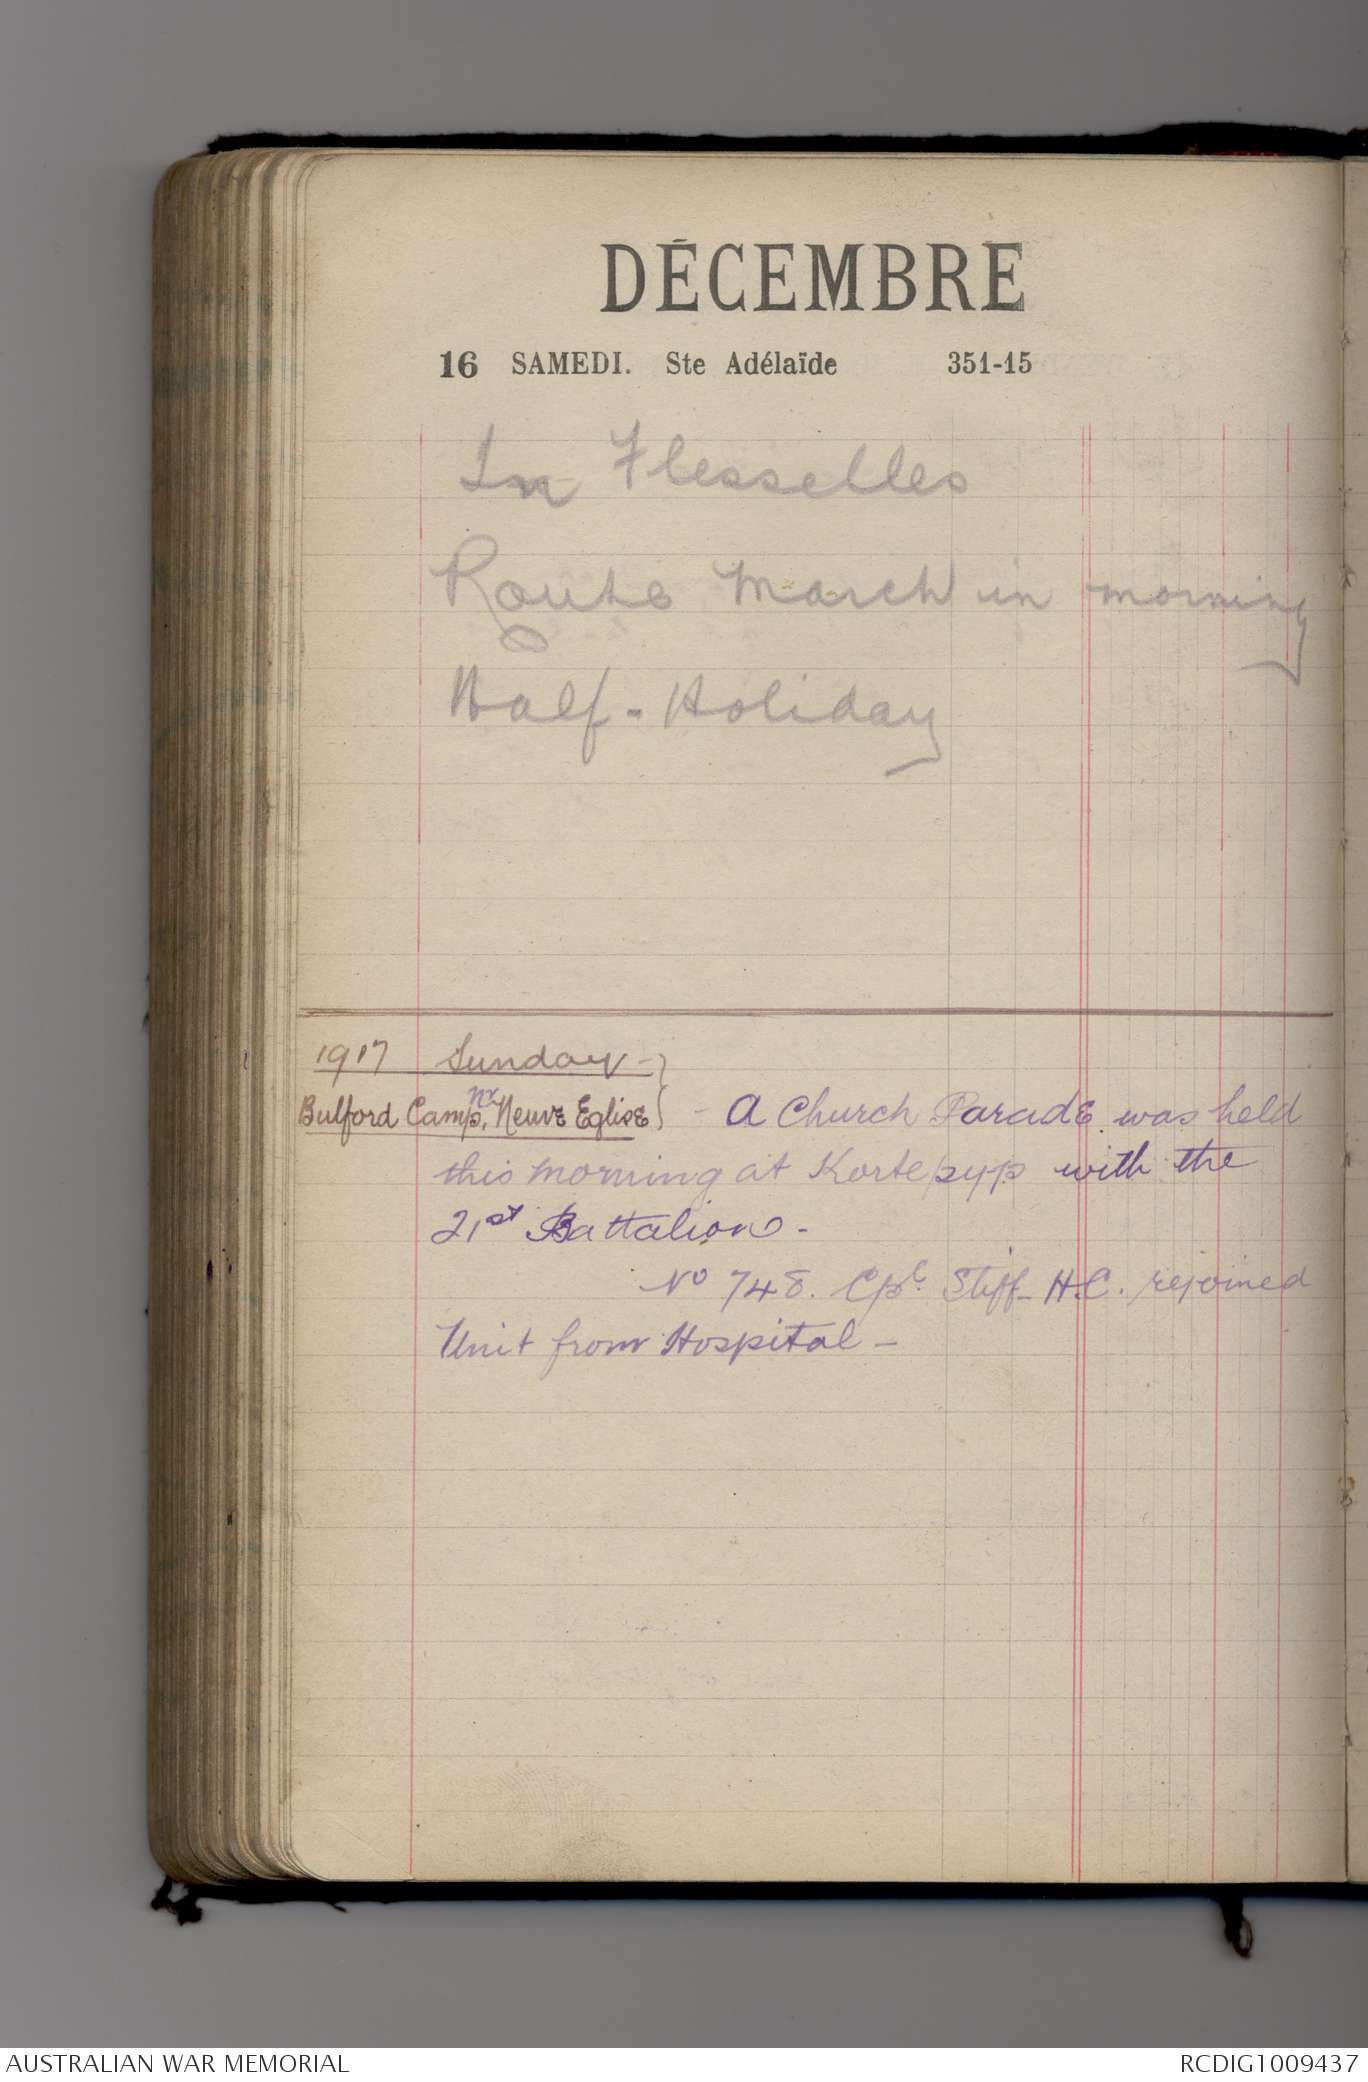 DÉCEMBRE
16 SAMEDI. Ste Adélaïde 351-15
In Flesselles
Route March in morning
Half-Holiday
1917 Sunday -
Bulford Camp, Nr Neuve Eglise } - A Church Parade was held
this morning at Kortepyp with the
21st Battalion -
No 748. Cpl. Stiff H.C. rejoined
Unit from Hospital -
AUSTRALIAN WAR MEMORIAL RCDIG1009437